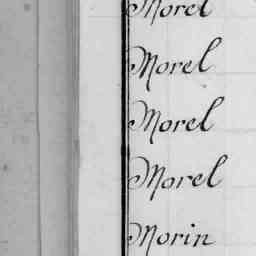 Morel
Morel
Morel
Morel
Morin